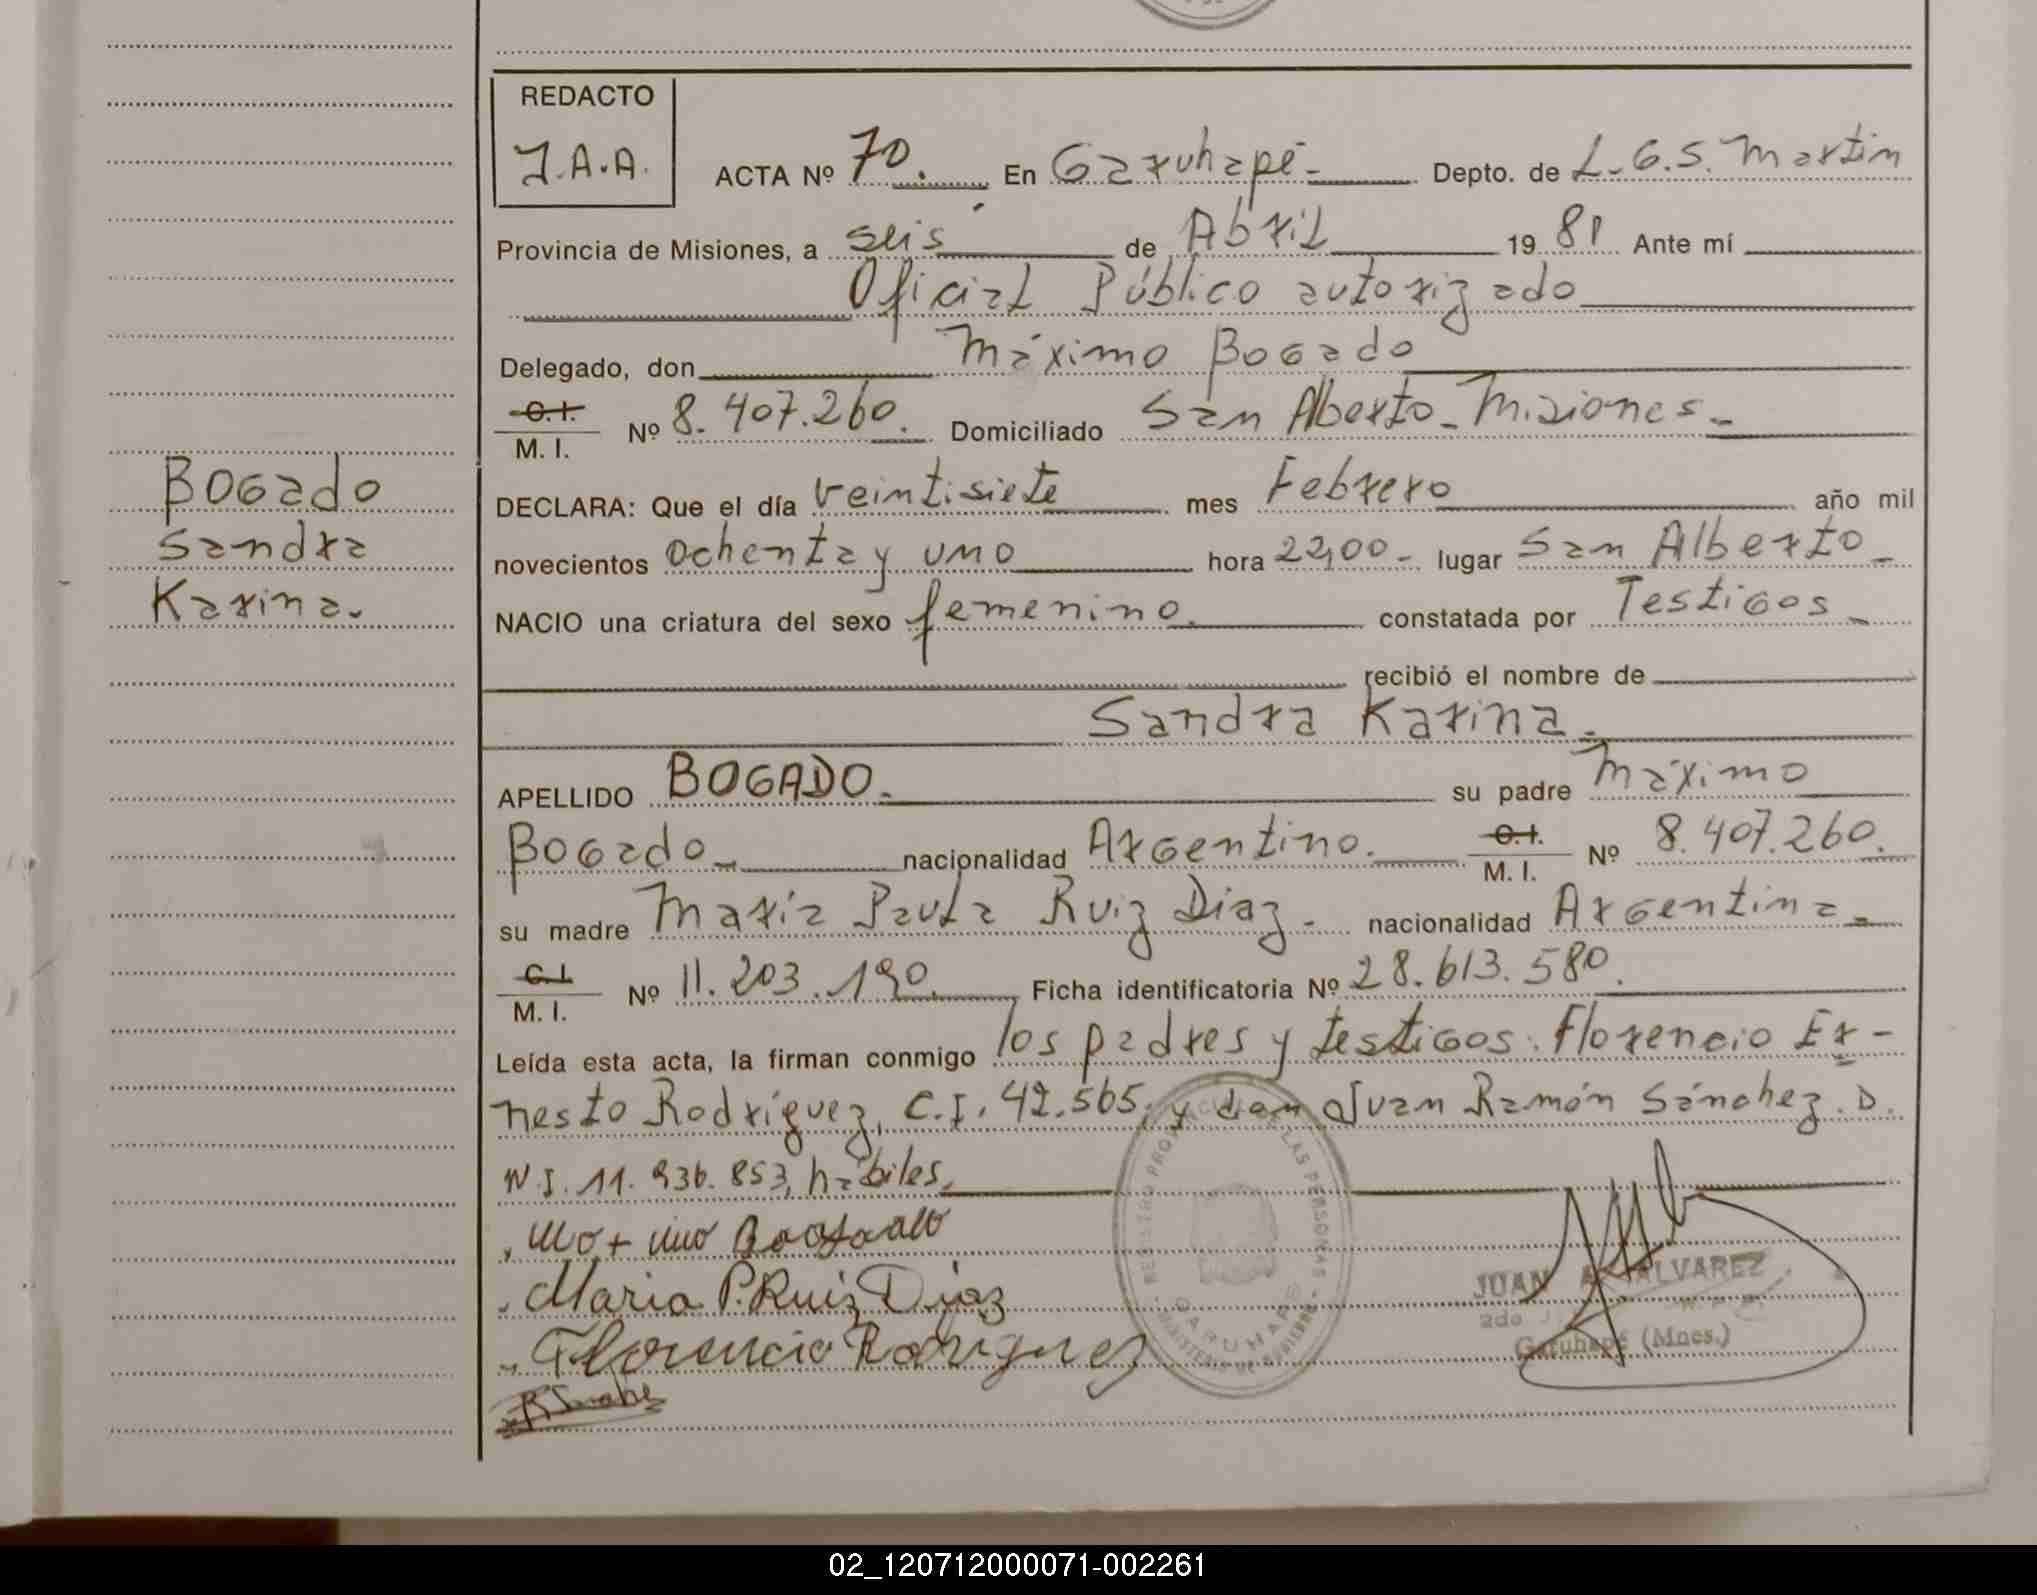 REDACTO
J.A.A.
ACTA Nº 70. En Garuhapé- Depto. de L.G.S. Martin
Provincia de Misiones, a seis de Abril 1981 Ante mí
Oficial Público autorizado
Delegado, don Máximo Bogado
C.I.
M. I. Nº 8.407.260. Domiciliado San Alberto-Misiones-
DECLARA: Que el día veintisiete mes Febrero año mil
novecientos ochenta y uno hora 22,00- lugar San Alberto-
NACIO una criatura del sexo femenino. constatada por Testigos-
recibió el nombre de
Sandra Karina.
APELLIDO BOGADO. su padre Máximo
Bogado- nacionalidad Argentino. C.I. M. I. Nº 8.407.260.
su madre María Paula Ruiz Diaz. nacionalidad Argentina-
C.I.
M. I. Nº 11.203.190. Ficha identificatoria Nº 28.613.580.
Leída esta acta, la firman conmigo los padres y testigos: Florencio Er-
nesto Rodríguez, C.I. 42.565, y don Juan Ramón Sánchez. D.
N.I. 11.936.853, hábiles.
Maria P. Ruiz Diaz
Florencio Rodriguez
Bogado
Sandra
Karina.
REGISTRO PROVINCIAL DE LAS PERSONAS
GARUHAPE
MINISTERIO DE GOBIERNO
JUAN A. ALVAREZ
2do J
Garuhapé (Mnes.)
02_120712000071-002261